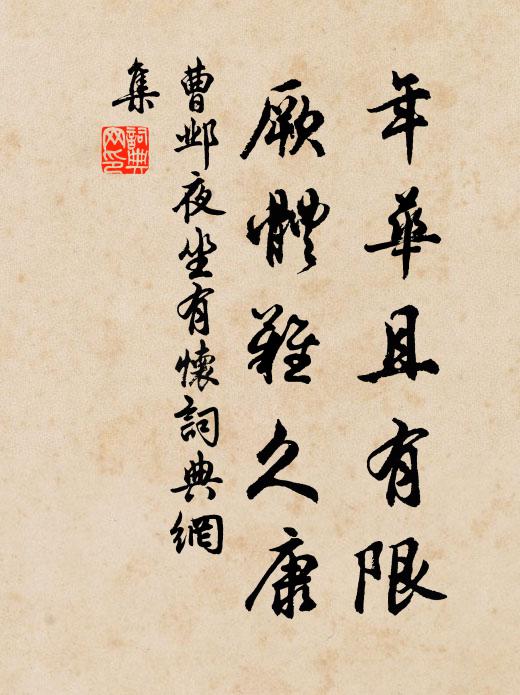 年華且有限
厥體難久康
曹邺夜坐有懷詞典網
集
詞典网印